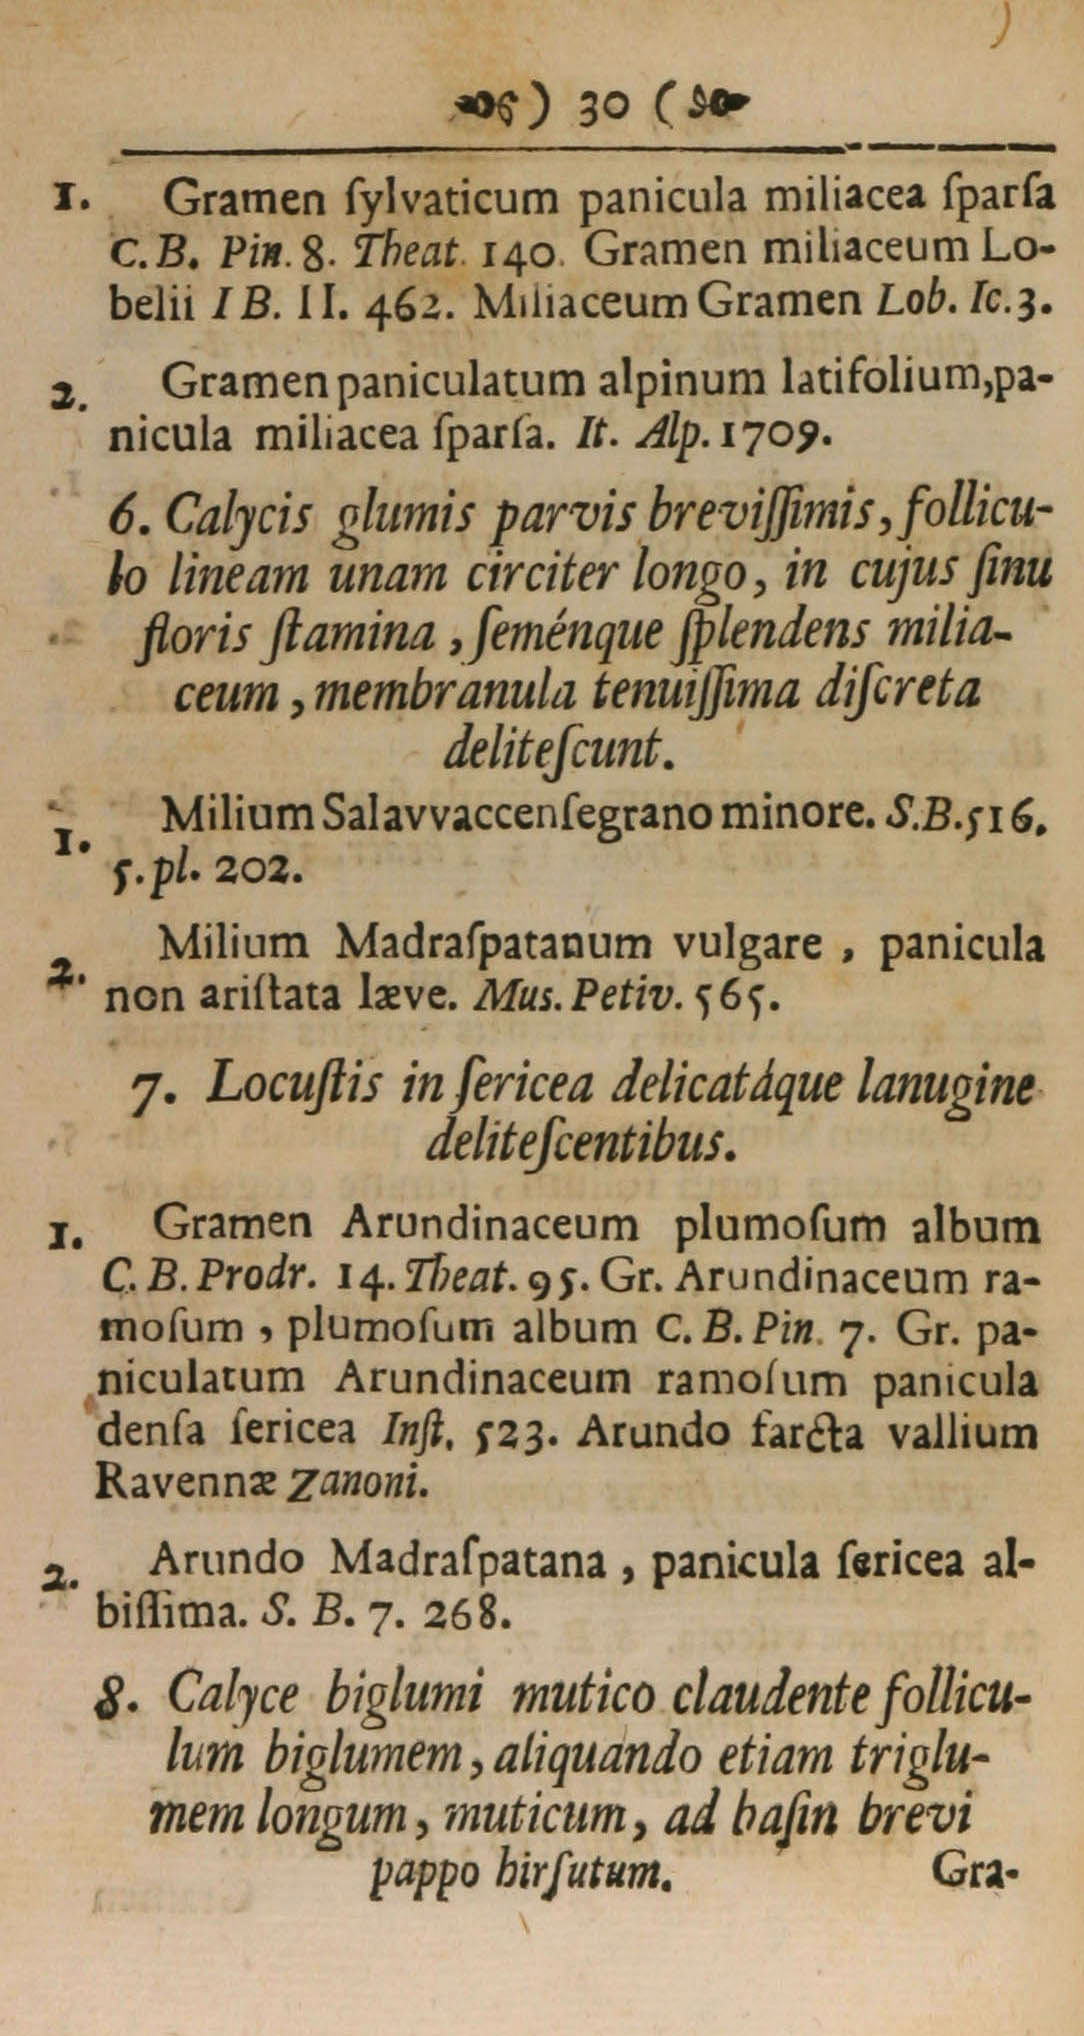 ) 30 (
1. Gramen ſylvaticum panicula miliacea ſparſa
C. B. Pin. 8. Theat. 140. Gramen miliaceum Lo-
belii I B. II. 462. Miliaceum Gramen Lob. Ic. 3.
2. Gramen paniculatum alpinum latifolium, pa-
nicula miliacea ſparſa. It. Alp. 1709.
6. Calycis glumis parvis breviſſimis, follicu-
lo lineam unam circiter longo, in cujus ſinu
floris ſtamina, ſeménque ſplendens milia-
ceum, membranula tenuiſſima diſcreta
deliteſcunt.
1. Milium Salavvaccenſe grano minore. S.B. 516.
5. pl. 202.
2. Milium Madraſpatanum vulgare, panicula
non ariſtata læve. Mus. Petiv. 565.
7. Locuſtis in ſericea delicatáque lanugine
deliteſcentibus.
1. Gramen Arundinaceum plumoſum album
C. B. Prodr. 14. Theat. 95. Gr. Arundinaceum ra-
moſum, plumoſum album C. B. Pin. 7. Gr. pa-
niculatum Arundinaceum ramoſum panicula
denſa ſericea Inſt. 523. Arundo farcta vallium
Ravennæ Zanoni.
2. Arundo Madraſpatana, panicula ſericea al-
biſſima. S. B. 7. 268.
8. Calyce biglumi mutico claudente follicu-
lum biglumem, aliquando etiam triglu-
mem longum, muticum, ad baſin brevi
pappo hirſutum.
Gra-